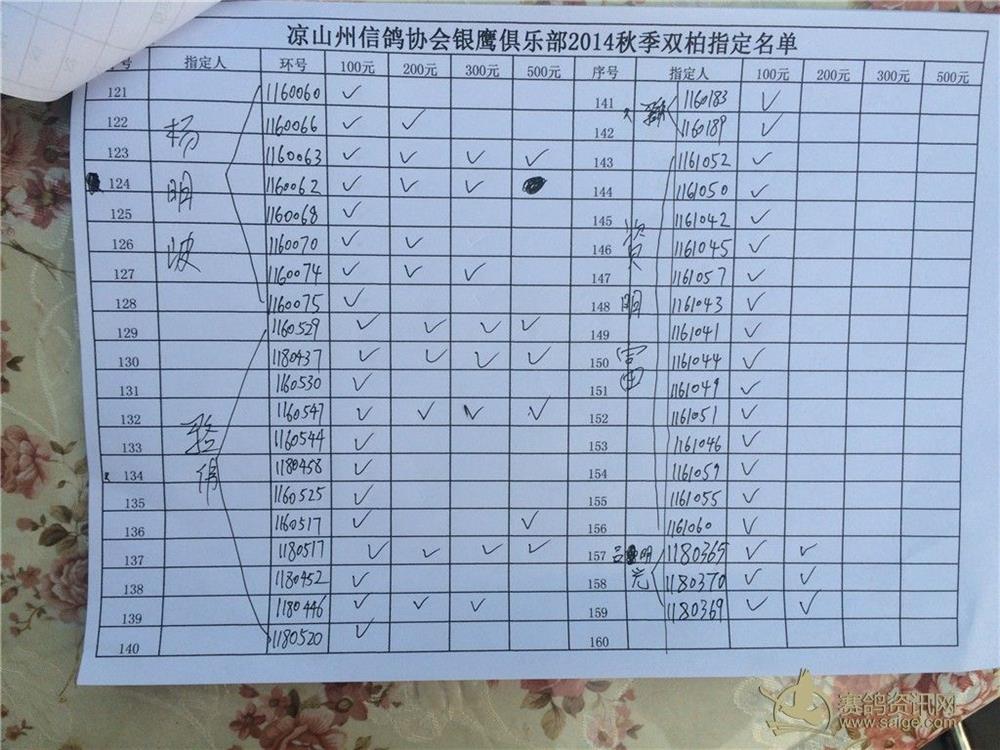 凉山州信鸽协会银鹰俱乐部2014秋季双柏指定名单
号 指定人 环号 100元 200元 300元 500元 序号 指定人 100元 200元 300元 500元
121 1160060 ✓ 141 1160183 ✓
122 1160066 ✓ ✓ 142 1160189 ✓
123 1160063 ✓ ✓ ✓ ✓ 143 1161052 ✓
124 1160062 ✓ ✓ ✓ 144 1161050 ✓
125 1160068 ✓ 145 1161042 ✓
126 1160070 ✓ ✓ 146 1161045 ✓
127 1160074 ✓ ✓ ✓ 147 1161057 ✓
128 1160075 ✓ 148 1161043 ✓
杨明波
129 1160529 ✓ ✓ ✓ ✓ 149 1161041 ✓
130 1180437 ✓ ✓ ✓ ✓ 150 1161044 ✓
131 1160530 ✓ 151 1161049 ✓
132 1160547 ✓ ✓ ✓ ✓ 152 1161051 ✓
133 1160544 ✓ 153 1161046 ✓
134 1180458 ✓ 154 1161059 ✓
135 1160525 ✓ 155 1161055 ✓
136 1160517 ✓ ✓ 156 1161060 ✓
明富
137 1180517 ✓ ✓ ✓ ✓ 157 1180365 ✓ ✓
138 1180452 ✓ 158 1180370 ✓ ✓
139 1180446 ✓ ✓ ✓ 159 1180369 ✓ ✓
140 1180520 ✓ 160
吕明光
赛鸽资讯网
www.saige.com